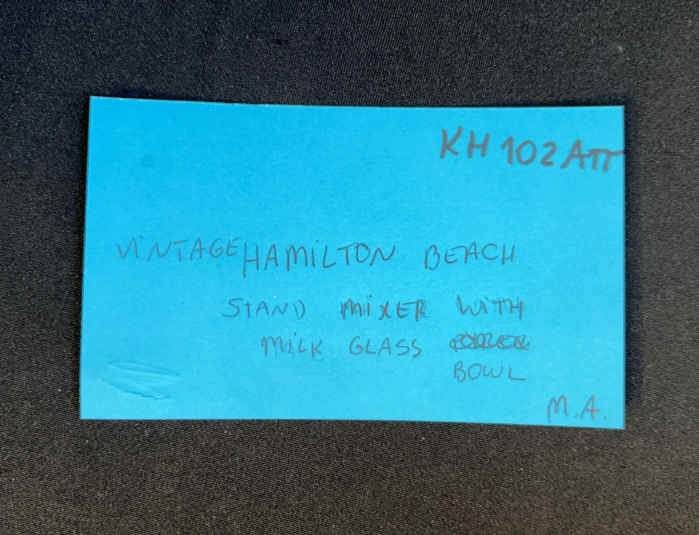 KH 102 ATT
VINTAGE HAMILTON BEACH
STAND MIXER WITH
MILK GLASS
BOWL
M.A.